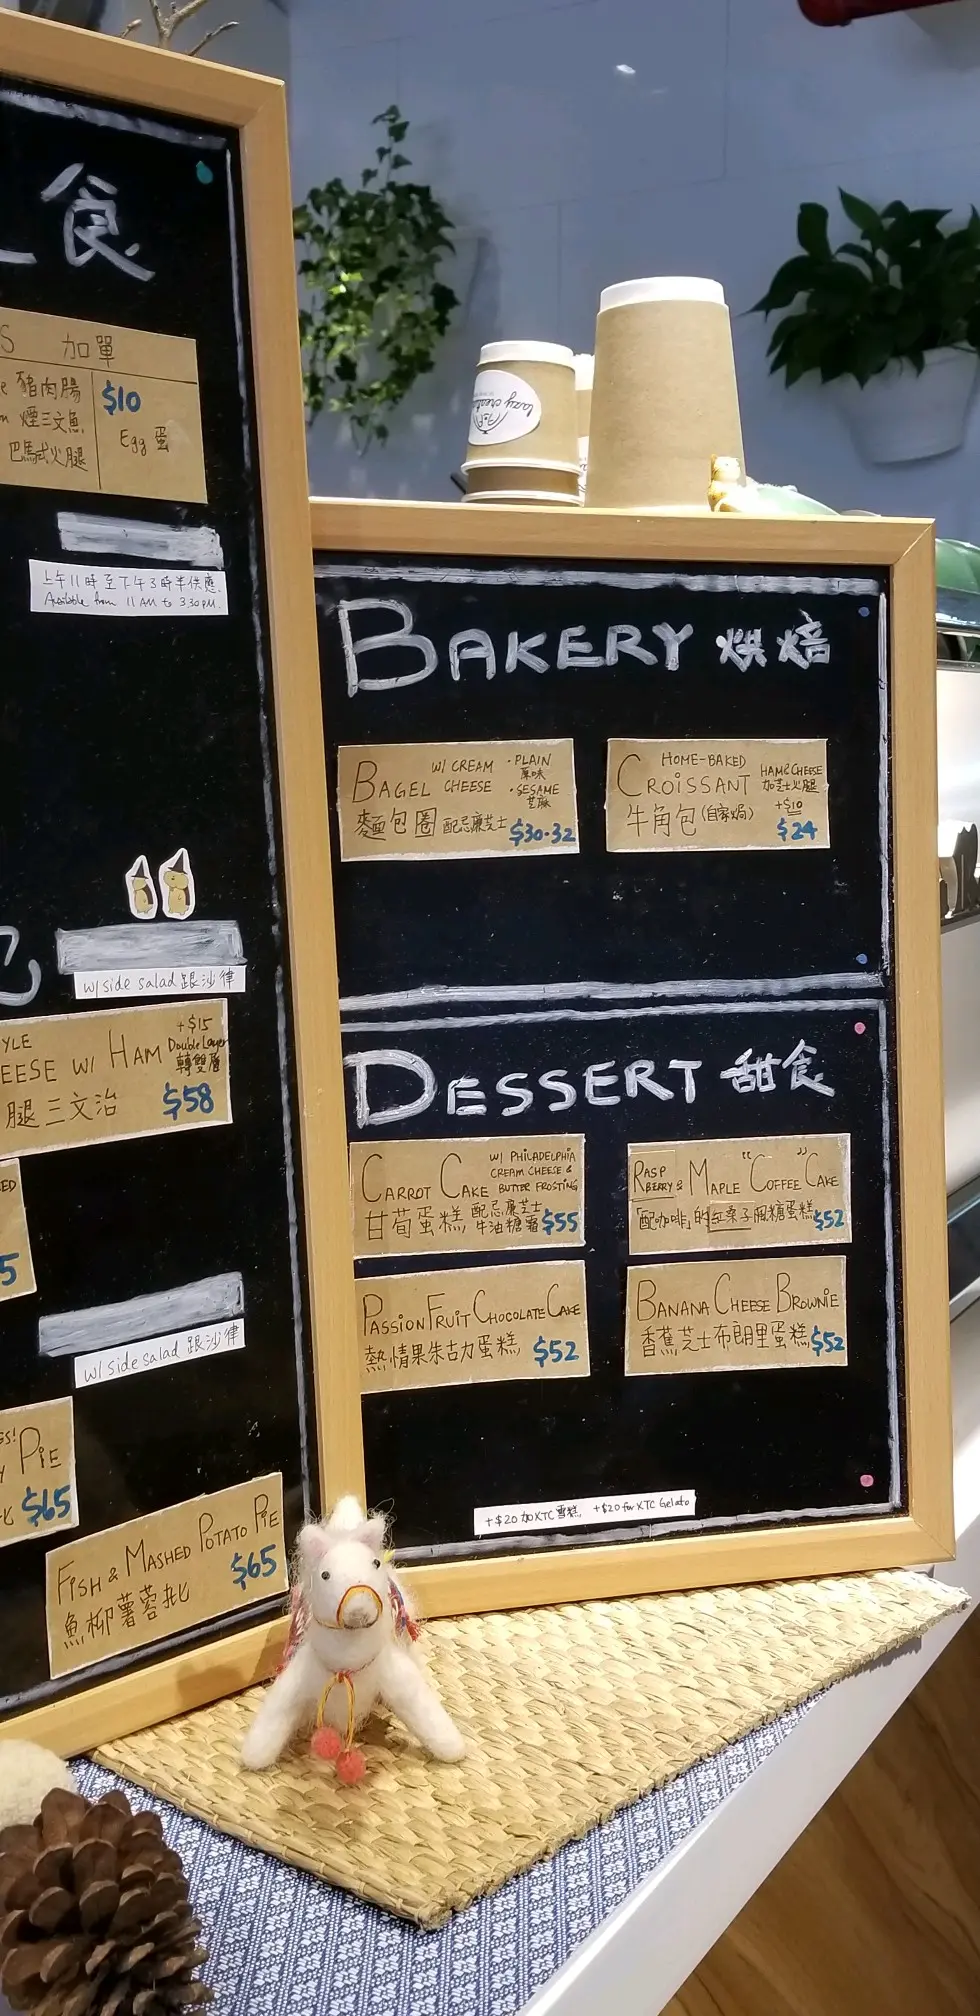 食
S 加單
e 豬肉腸
n 煙三文魚
巴馬式火腿
$10
Egg 蛋
上午11時至下午3時半供應
Available from 11AM to 3:30PM.
w/ side salad 跟沙律
YLE
EESE W/ HAM
腿三文治
+$15
Double Layer
轉雙層
$58
ED
5
w/ side salad 跟沙律
GS!
Y PIE
批 $65
FISH & MASHED POTATO PIE
魚柳薯蓉批
$65
lazy
BAKERY 烘焙
BAGEL W/ CREAM CHEESE
· PLAIN
原味
· SESAME
芝麻
麵包圈 配忌廉芝士 $30·32
HOME-BAKED
CROISSANT
牛角包(自家焗)
HAM&CHEESE
加芝士火腿
+$10
$24
DESSERT 甜食
CARROT CAKE W/ PHILADELPHIA
CREAM CHEESE &
BUTTER FROSTING
甘荀蛋糕 配忌廉芝士
牛油糖霜 $55
RASPBERRY & MAPLE "COFFEE" CAKE
「配咖啡」的紅桑子楓糖蛋糕 $52
PASSION FRUIT CHOCOLATE CAKE
熱情果朱古力蛋糕 $52
BANANA CHEESE BROWNIE
香蕉芝士布朗里蛋糕 $52
+$20 加XTC 雪糕 +$20 for XTC Gelato